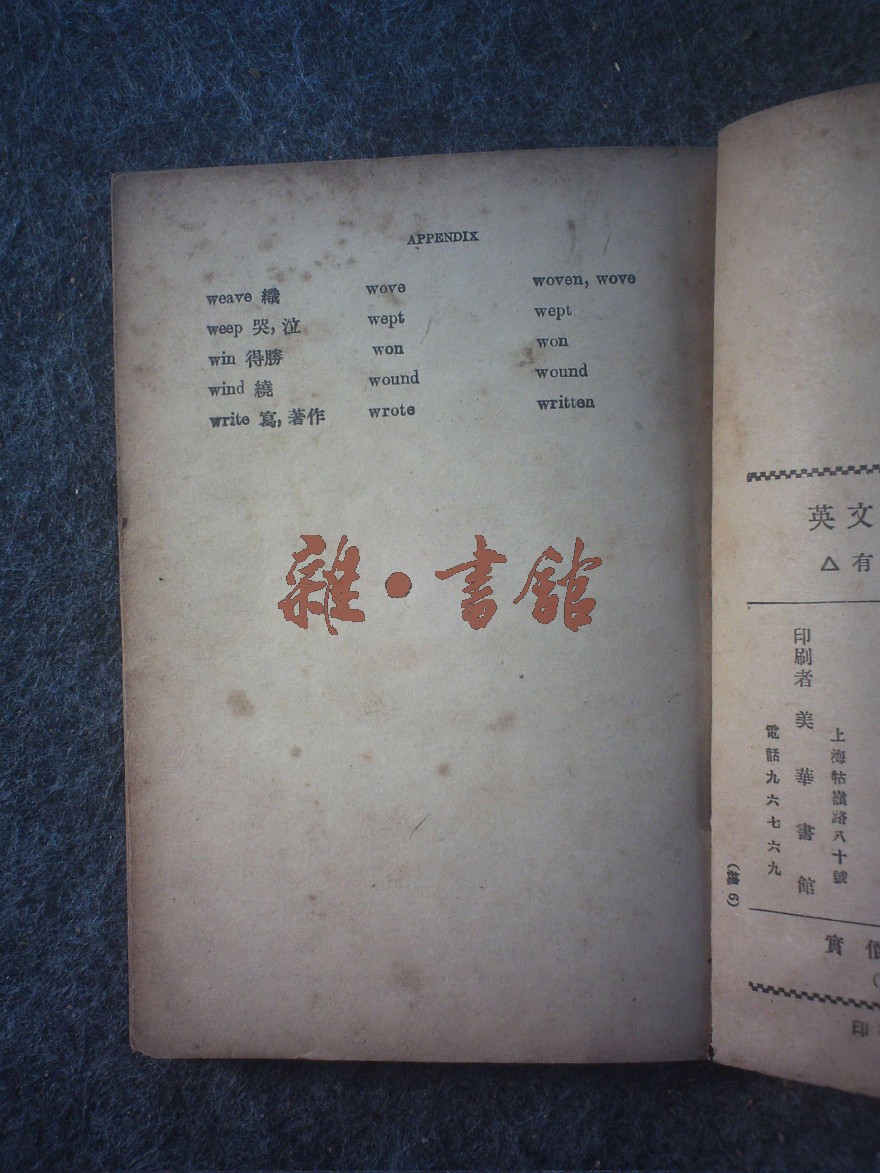 APPENDIX
weave 織 wove woven, wove
weep 哭, 泣 wept wept
win 得勝 won won
wind 繞 wound wound
write 寫, 著作 wrote written
雜·書館
英文
△有
上海牯嶺路八十號
印刷者 美華書館
電話九六七六九
實價
印